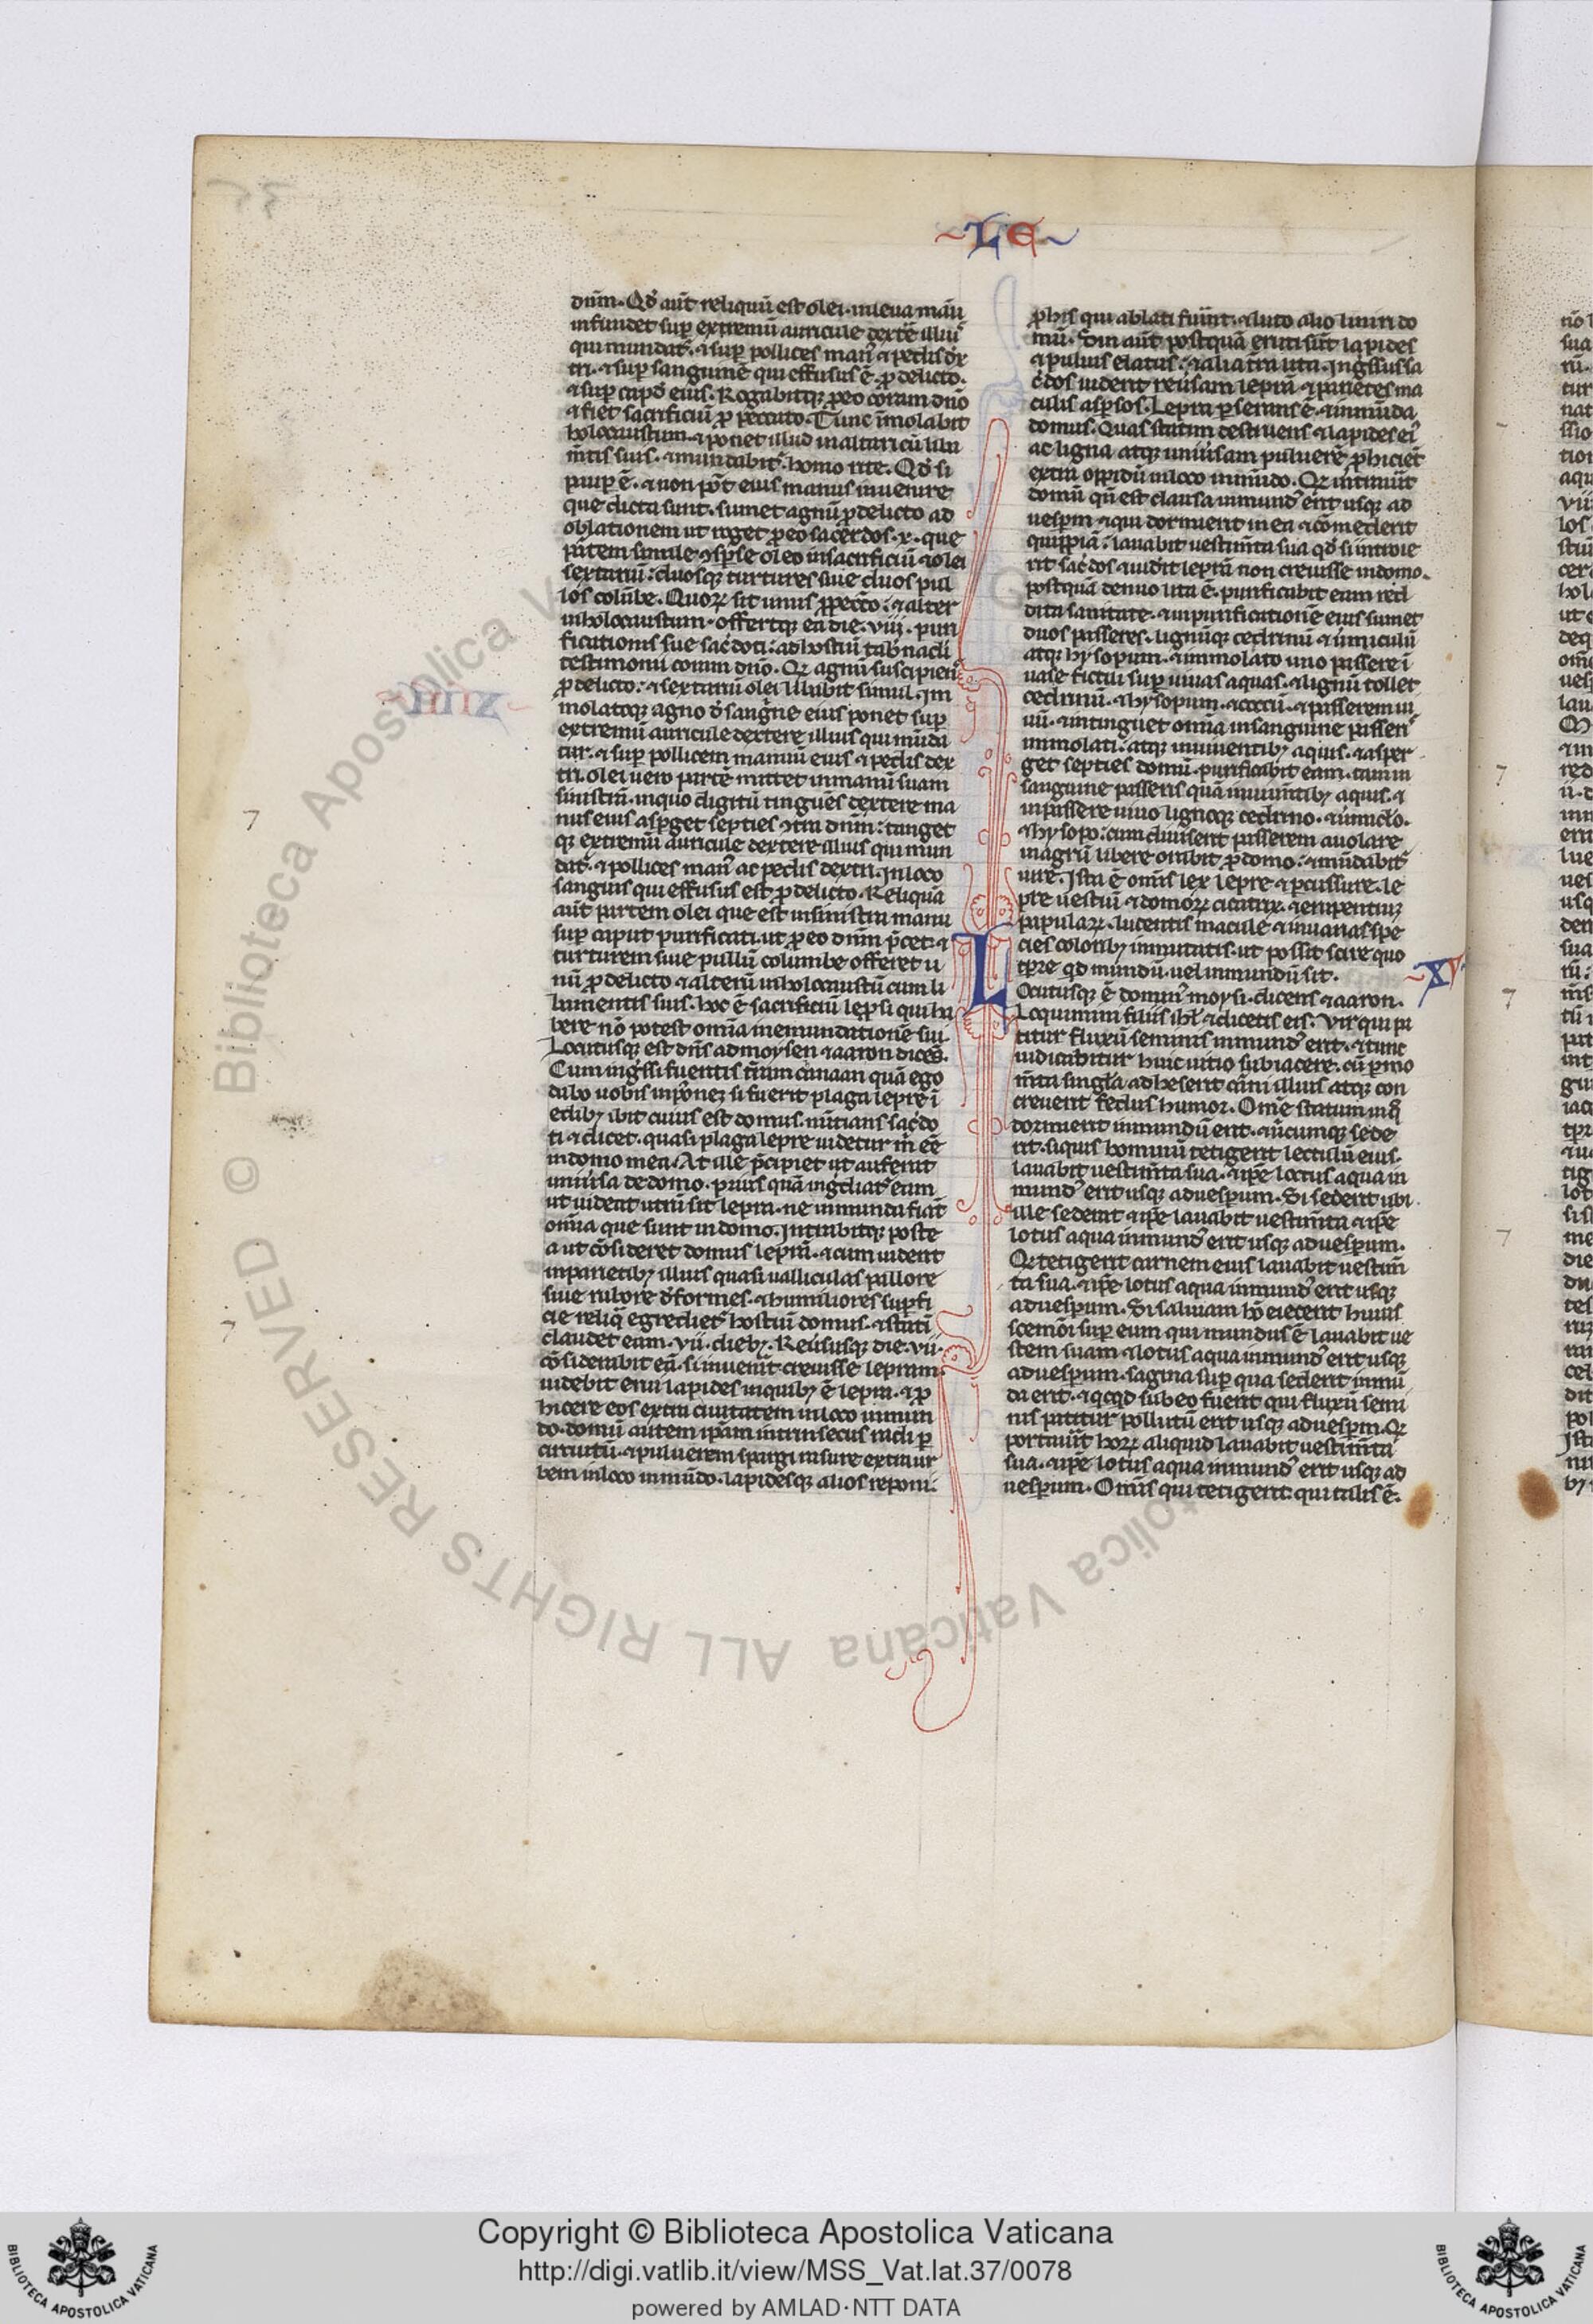 LE
dnm. Qd aut reliquu est olei. in leua manu
infundet sup extremu auricule dextre illius
qui mundat. ⁊ sup pollices man⁹ ⁊ pedis dex
tri. ⁊ sup sanguine qui effusus ē ꝓ delicto.
⁊ sup capd eius. Rogabitqꝫ ꝓ eo coram dno
⁊ fiet sacrificiū ꝓ peccato. Tunc īmolabit
holocaustum. ⁊ ponet illud in altari cū liba
mtis suis. ⁊ mundabit. homo rite. Qd si
paup ē. ⁊ non pōt eius manus inuenire
que dicta sunt. sumet agnū ꝓ delicto ad
oblationem ut roget ꝓ eo sacerdos. x. que
partem simile ꝯsꝑse oleo in sacrificiū ⁊ olei
sextariū: duosqꝫ turtures siue duos pul
los colūbe. Quoꝝ sit unus ꝓ peccō: ⁊ alter
in holocaustum. offertqꝫ ea die. viij. puri
ficationis sue sacdoti: ad hostiū tabnacli
testimonii coram dno. Qꝛ agnū suscipiens
ꝓ delicto: ⁊ sextariū olei illabit simul. Im
molatoqꝫ agno d sangne eius ponet sup
extremū auricule dextere illius qui mūda
tur. ⁊ sup pollicem manuū eius ⁊ pedis dex
tri. olei uero partē mittet in manū suam
sinistrā. in quo digitū tinguēs dextere ma
nus eius aspget septies ꝯtra dnm: tanget
qꝫ extremū auricule dextere illius qui mun
dat. ⁊ pollices man⁹ ac pedis dextri. In loco
sanguis qui effusus est ꝓ delicto. Reliquā
aut partem olei que est in sinistra manu
sup caput purificati. ut ꝓ eo dnm pcet. ⁊
turturem siue pullū columbe offeret u
nū ꝓ delicto ⁊ alterū in holocaustū cum li
bamentis suis. hoc ē sacrificiū leprsi qui ha
bere nō potest omīa in emundationē sui.
Locutusqꝫ est dns ad moysen ⁊ aaron dices.
Cum ingssi fueritis tram canaan quā ego
dabo uobis in ꝑonez si fuerit plaga lepre ī
edibꝫ ibit cuius est domus. nūtians sacdo
ti ⁊ dicet. quasi plaga lepre uidetur m eē
in domo mea. At ille pcipiet ut auferāt
uniusa de domo. prius quā ingdiat eam
ut uideat utrū sit lepra. ne inmunda fiāt
omīa que sunt in domo. Intrabitqꝫ poste
a ut cōsideret domus leprā. ⁊ cum uiderit
in parietibꝫ illius quasi ualliculas pallore
siue rubore dformes. ⁊ humiliores supfi
cie reliq egrediet hostiū domus. ⁊ statī
claudet eam. vij. diebꝫ. Reusus qꝫ die. vij.
cōsiderabit eā. si inuenit creuisse lepram
iubebit erui lapides in quibꝫ ē lepra. ⁊ ꝓ
hicere eos extra ciuitatem in loco inmun
do. domū autem ipam intrinsecus radi ꝑ
circuitū. ⁊ puluerem spargi rasure extra ur
bem in loco inmūdo. lapidesqꝫ alios reponi.
XIIII
phis qui ablati fuint. ⁊ luto alio liniri do
mū. Sin aut postquā eruti sūt lapides
⁊ puluis elatus: ⁊ alia tra lita. Ingssus sa
cdos uiderit reusam leprā ⁊ parietes ma
culis aspsos. Lepra ꝑseruans ē. ⁊ inmūda
domus. Quas statim destruens ⁊ lapides eī
ac ligna atqꝫ uniusam puluerē ꝓhiciet
extra oppidū in loco inmūdo. Qꝛ intrauit
domū qn est clausa inmund⁹ erit usqꝫ ad
uesperm ⁊ qui dormierit in ea ⁊ cōmederit
quippiā: lauabit uestimta sua qd si introie
rit sacdos ⁊ uidit leprā non creuisse in domo.
postquā denuo lita ē. purificabit eam red
dita sanitate. ⁊ in purificationē eius sumet
duos passeres. lignūqꝫ cedrinū ⁊ umiculū
atqꝫ hysopum. ⁊ immolato uno passere ī
uase fictili sup uiuas aquas. ⁊ lignū tollet
cedrinū. ⁊ hysopum. ⁊ coccū. ⁊ passerem ui
uū. ⁊ intinguet omīa in sanguine passeris
immolati. atqꝫ in uiuentibꝫ aquis. ⁊ asper
get septies domū. purificabit eam. tam in
sanguine passeris quā in uiuntibꝫ aquis. ⁊
in passere uiuo lignoqꝫ cedrino. ⁊ umiclo.
⁊ hysopo: cum dimiserit passerem auolare
in agrū libere orabit ꝓ domo: ⁊ mūdabit
iure. Ista ē omīs lex lepre ⁊ ꝑcussure. le
pre uestiū ⁊ domoꝝ cicatrix. ⁊ erupentiuꝫ
papulaꝝ. lucentis macule ⁊ in uarias spe
cies coloribꝫ inmutatis. ut possit scire quo
tpre qd mundū. uel inmundū sit.
XV
Locutusqꝫ ē domin⁹ moysi. dicens ⁊ aaron.
Loquimini filiis isrl ⁊ dicetis eis. Vir qui pa
titur fluxū seminis inmund⁹ erit. ⁊ tunc
iudicabitur huic uitio subiacere. cū ꝑ mo
mta singla adheserit carni illius atqꝫ con
creuerit fedus humor. Omē stratum in q
dormierit inmundū erit. ⁊ ubcumqꝫ sede
rit. siquis hominū tetigerit lectulū eius.
lauabit uestimta sua. ⁊ ipe lotus aqua in
mund⁹ erit usqꝫ ad uespum. Si sederit ubi
ille sederat ⁊ ipe lauabit uestimta ⁊ ipe
lotus aqua inmund⁹ erit usqꝫ ad uespum.
Qꝛ tetigerit carnem eius lauabit uestim
ta sua. ⁊ ipe lotus aqua inmund⁹ erit usqꝫ
ad uespum. Si saliuam hō eiecerit huius
scemōi sup eum qui mundus ē lauabit ue
stem suam ⁊ lotus aqua inmund⁹ erit usqꝫ
ad uespum. sagma sup qua sederit inmū
da erit. ⁊ qcqd sub eo fuerit qui fluxū semi
nis patitur pollutū erit usqꝫ ad uespm. Qꝛ
portauit hoꝝ aliquid lauabit uestimta
sua. ⁊ ipe lotus aqua inmund⁹ erit usqꝫ ad
uespum. Omīs qui tetigerit qui talis ē.
© Biblioteca Apostolica Vaticana ALL RIGHTS RESERVED
Copyright © Biblioteca Apostolica Vaticana
http://digi.vatlib.it/view/MSS_Vat.lat.37/0078
powered by AMLAD·NTT DATA
BIBLIOTECA APOSTOLICA VATICANA
BIBLIOTECA APOSTOLICA VATICANA